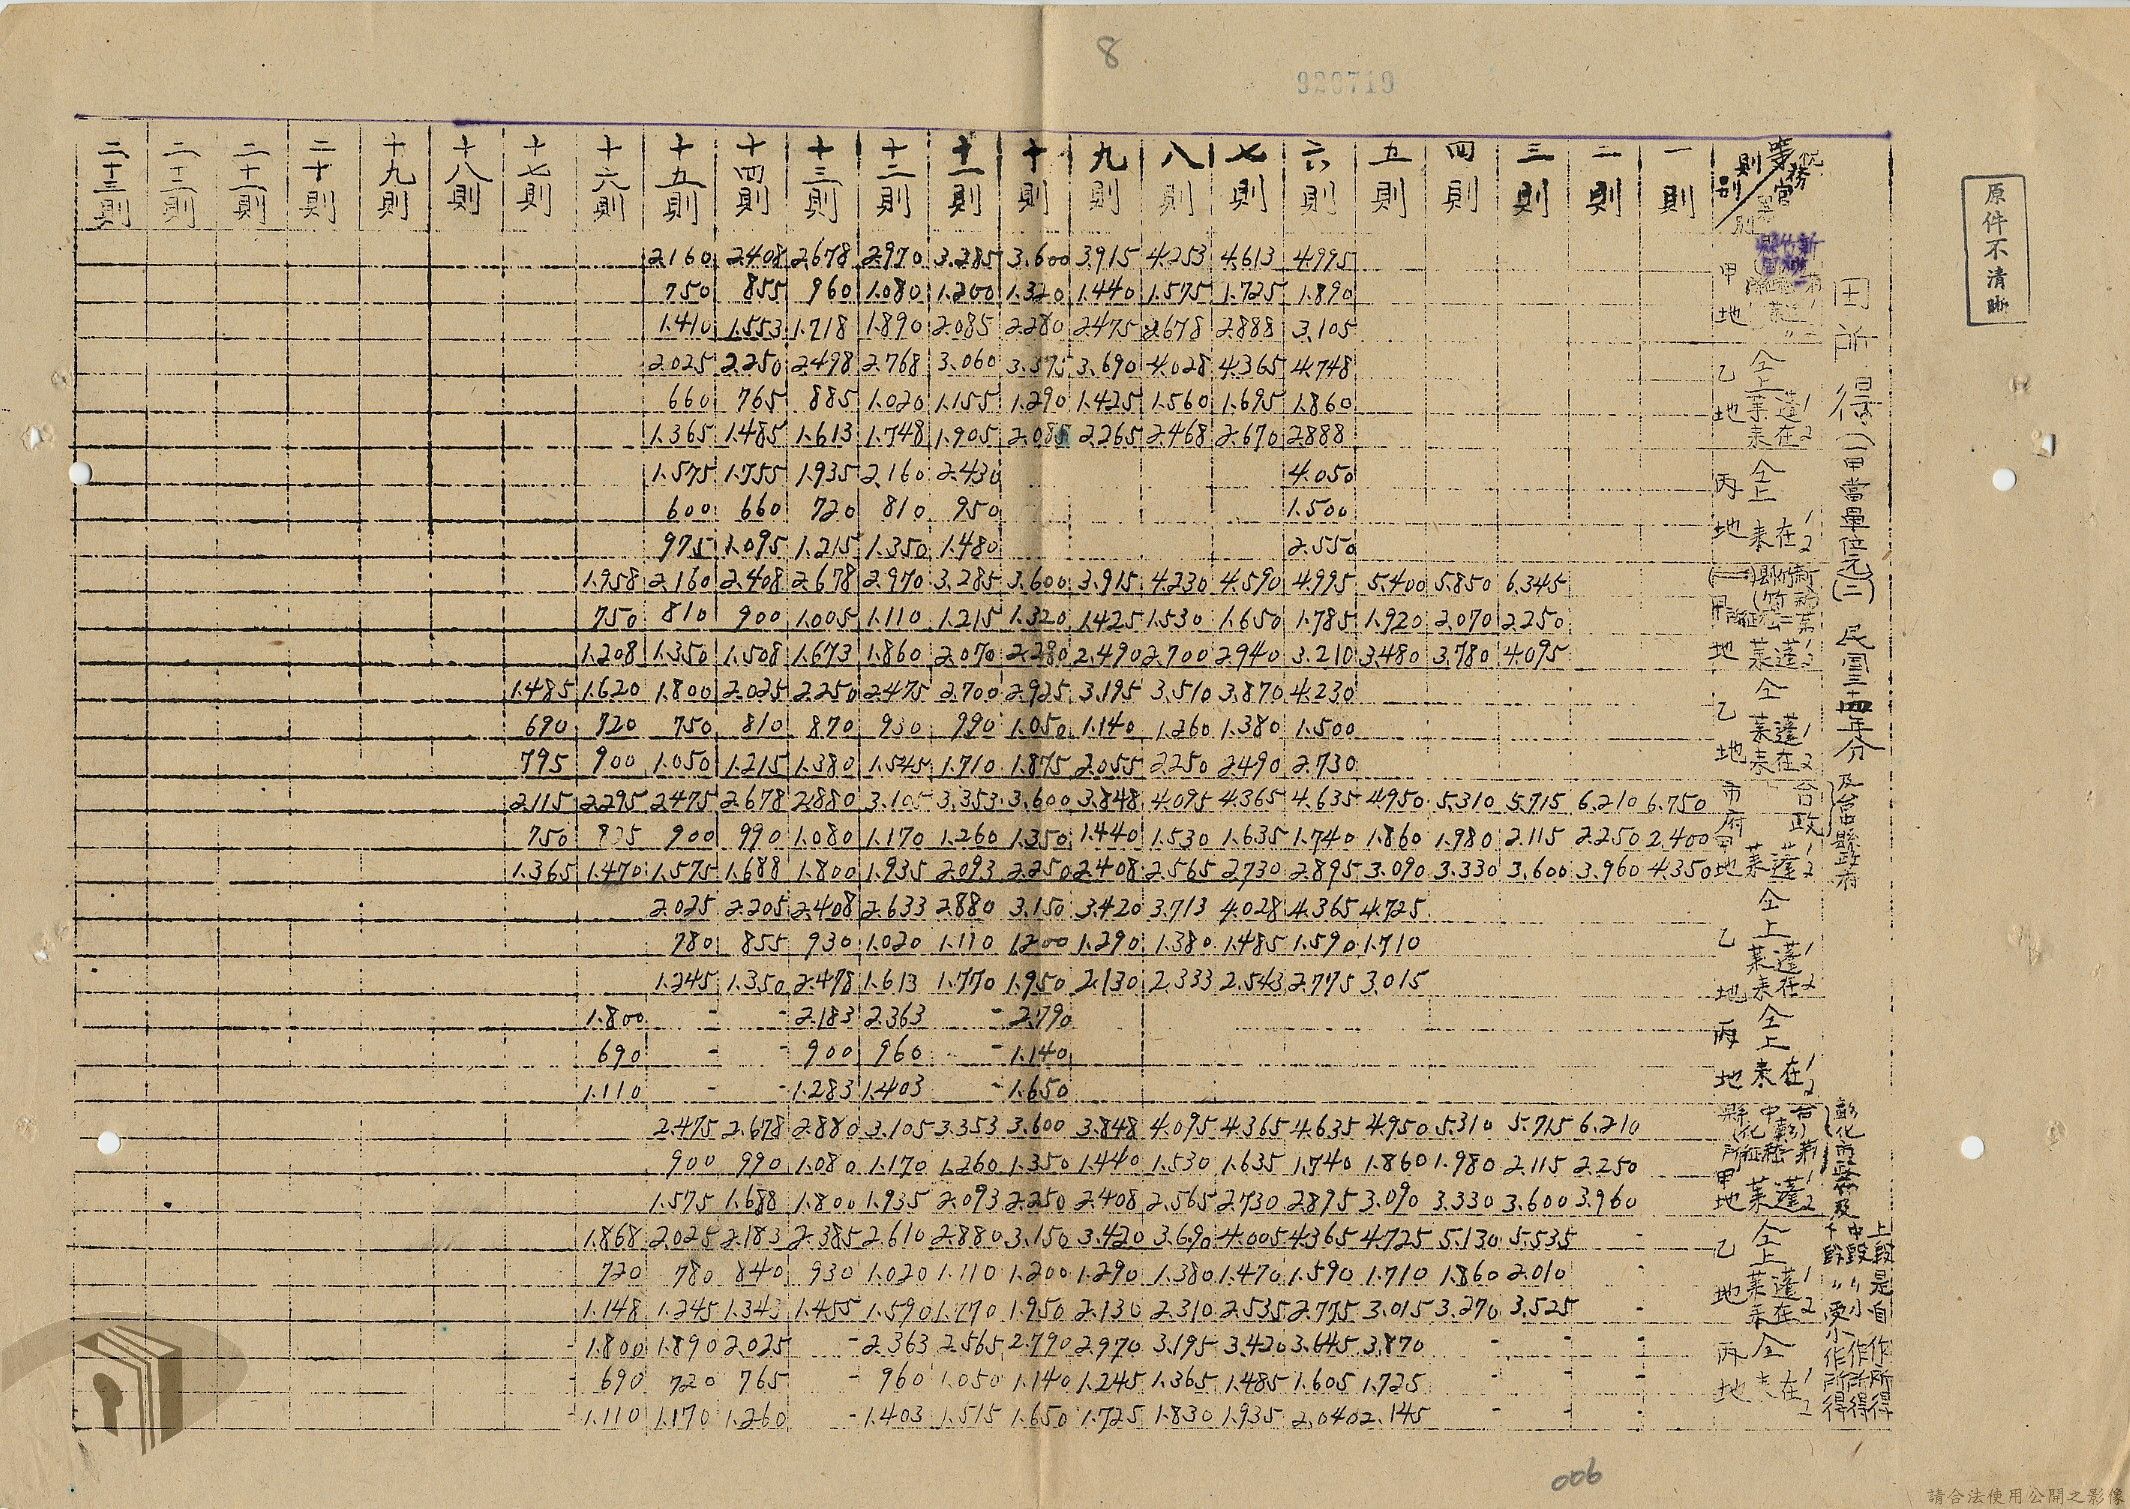 8
920710
原件不清晰
田所得(一甲當單位元)(二) 民国三十四年分
及台中縣政府
彰化市政府及
上段是自作所得
中段〃小作所得
下段〃受小作所得
稅務官署別 則別
一則 二則 三則 四則 五則 六則 七則 八則 九則 十則 十一則 十二則 十三則 十四則 十五則 十六則 十七則 十八則 十九則 二十則 二十一則 二十二則 二十三則
甲地
2.160 2.408 2.678 2.970 3.285 3.600 3.915 4.253 4.613 4.995
750 855 960 1.080 1.200 1.320 1.440 1.575 1.725 1.890
1.410 1.553 1.718 1.890 2.085 2.280 2.475 2.678 2.888 3.105
乙地 仝上 蓬莱1 在来2
2.025 2.250 2.498 2.768 3.060 3.375 3.690 4.028 4.365 4.748
660 765 885 1.020 1.155 1.290 1.425 1.560 1.695 1.860
1.365 1.485 1.613 1.748 1.905 2.085 2.265 2.468 2.670 2.888
丙地 仝上 在来1/2
1.575 1.755 1.935 2.160 2.430 4.050
600 660 720 810 950 1.500
975 1.095 1.215 1.350 1.480 2.550
甲地 蓬莱1/2
1.958 2.160 2.408 2.678 2.970 3.285 3.600 3.915 4.230 4.590 4.995 5.400 5.850 6.345
750 810 900 1.005 1.110 1.215 1.320 1.425 1.530 1.650 1.785 1.920 2.070 2.250
1.208 1.350 1.508 1.673 1.860 2.070 2.280 2.490 2.700 2.940 3.210 3.480 3.780 4.095
乙地 仝 蓬莱1 在来2
1.485 1.620 1.800 2.025 2.250 2.475 2.700 2.925 3.195 3.510 3.870 4.230
690 720 750 810 870 930 990 1.050 1.140 1.260 1.380 1.500
795 900 1.050 1.215 1.380 1.545 1.710 1.875 2.055 2.250 2.490 2.730
台市政府 甲地 蓬莱1/2
2.115 2.295 2.475 2.678 2.880 3.105 3.353 3.600 3.848 4.095 4.365 4.635 4.950 5.310 5.715 6.210 6.750
750 835 900 990 1.080 1.170 1.260 1.350 1.440 1.530 1.635 1.740 1.860 1.980 2.115 2.250 2.400
1.365 1.470 1.575 1.688 1.800 1.935 2.093 2.250 2.408 2.565 2.730 2.895 3.090 3.330 3.600 3.960 4.350
乙地 仝上 蓬莱1 在来2
2.025 2.205 2.408 2.633 2.880 3.150 3.420 3.713 4.028 4.365 4.725
780 855 930 1.020 1.110 1.200 1.290 1.380 1.485 1.590 1.710
1.245 1.350 2.478 1.613 1.770 1.950 2.130 2.333 2.543 2.775 3.015
丙地 仝上 在来1/2
1.800 - - 2.183 2.363 - 2.790
690 - - 900 960 - 1.140
1.110 - - 1.283 1.403 - 1.650
台中縣(彰化) 甲地 蓬莱1/2
2.475 2.678 2.880 3.105 3.353 3.600 3.848 4.095 4.365 4.635 4.950 5.310 5.715 6.210
900 990 1.080 1.170 1.260 1.350 1.440 1.530 1.635 1.740 1.860 1.980 2.115 2.250
1.575 1.688 1.800 1.935 2.093 2.250 2.408 2.565 2.730 2.895 3.090 3.330 3.600 3.960
乙地 仝上 蓬莱1 在来2
1.868 2.025 2.183 2.385 2.610 2.880 3.150 3.420 3.690 4.005 4.365 4.725 5.130 5.535 -
720 780 840 930 1.020 1.110 1.200 1.290 1.380 1.470 1.590 1.710 1.860 2.010 -
1.148 1.245 1.343 1.455 1.590 1.770 1.950 2.130 2.310 2.535 2.775 3.015 3.270 3.525 -
丙地 仝 在来1/2
- 1.800 1.890 2.025 - 2.363 2.565 2.790 2.970 3.195 3.420 3.645 3.870 - - -
- 690 720 765 - 960 1.050 1.140 1.245 1.365 1.485 1.605 1.725 - - -
- 1.110 1.170 1.260 - 1.403 1.515 1.650 1.725 1.830 1.935 2.040 2.145 - - -
006
請合法使用公開之影像